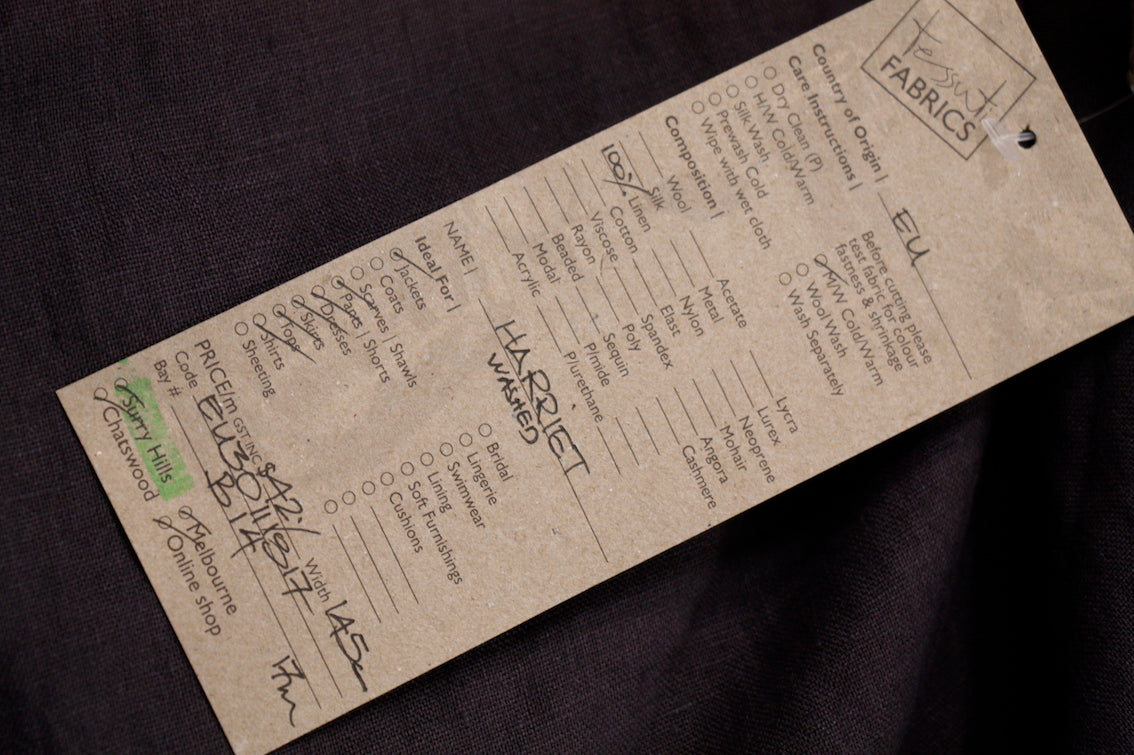 tessuti
FABRICS
Country of Origin | EU
Care Instructions |
Dry Clean (P)
H/W Cold/Warm
Silk Wash
Prewash Cold
Wipe with wet cloth
Before cutting please
test fabric for colour
fastness & shrinkage
M/W Cold/Warm
Wool Wash
Wash Separately
Composition |
Wool
Silk
100% Linen
Cotton
Viscose
Rayon
Beaded
Modal
Acrylic
Acetate
Metal
Nylon
Elast
Spandex
Poly
Sequin
P/mide
P/urethane
Lycra
Lurex
Neoprene
Mohair
Angora
Cashmere
NAME | HARRIET
WASHED
Ideal For |
Jackets
Coats
Scarves | Shawls
Pants | Shorts
Dresses
Skirts
Tops
Shirts
Sheeting
Bridal
Lingerie
Swimwear
Lining
Soft Furnishings
Cushions
PRICE/m GST.INC $42./ Width 145c
Code EU3011817
Bay # B14
Surry Hills
Chatswood
Melbourne
Online shop
17m